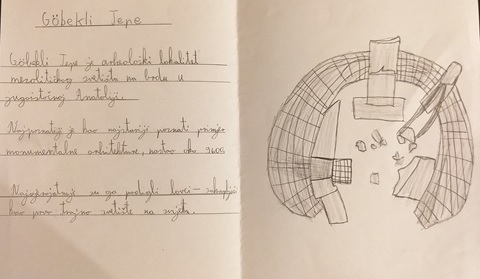 Göbekli Tepe
Göbekli Tepe je arheološki lokalitet
mezolitičkog svetišta na brdu u
jugoistočnoj Anatoliji.
Najpoznatiji je kao najstariji poznati primjer
monumentalne arhitekture, nastao oko 9600
Najvjerojatnije su ga podigli lovci-sakupljači
kao prvo trajno svetište na svijetu.